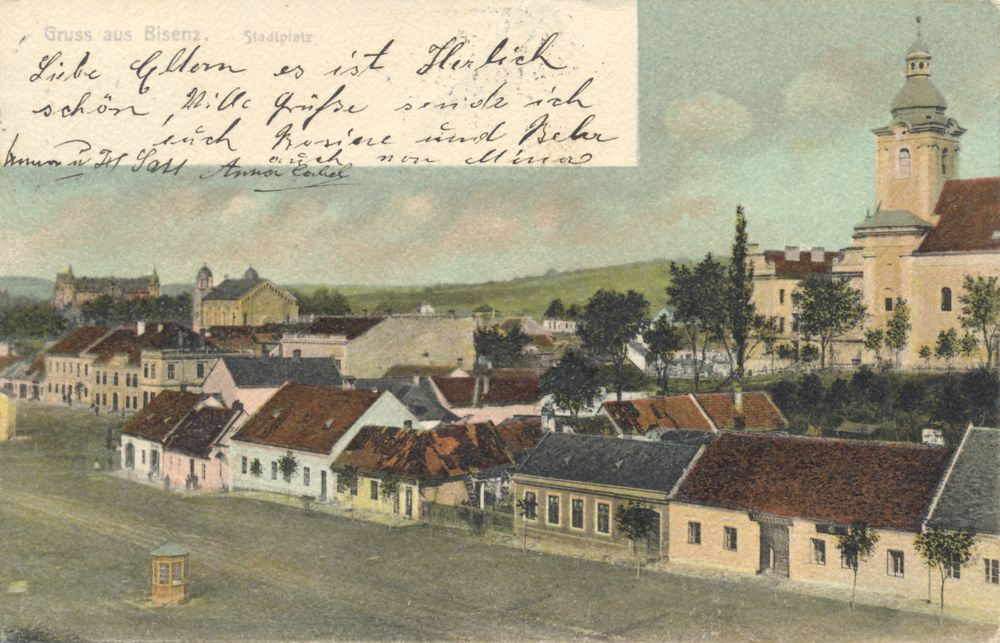 Gruss aus Bisenz. Stadtplatz
Liebe Eltern es ist Herlich
schön, Ville Grüße sendz ich
euch Rosine und
auch von Mina
Anna